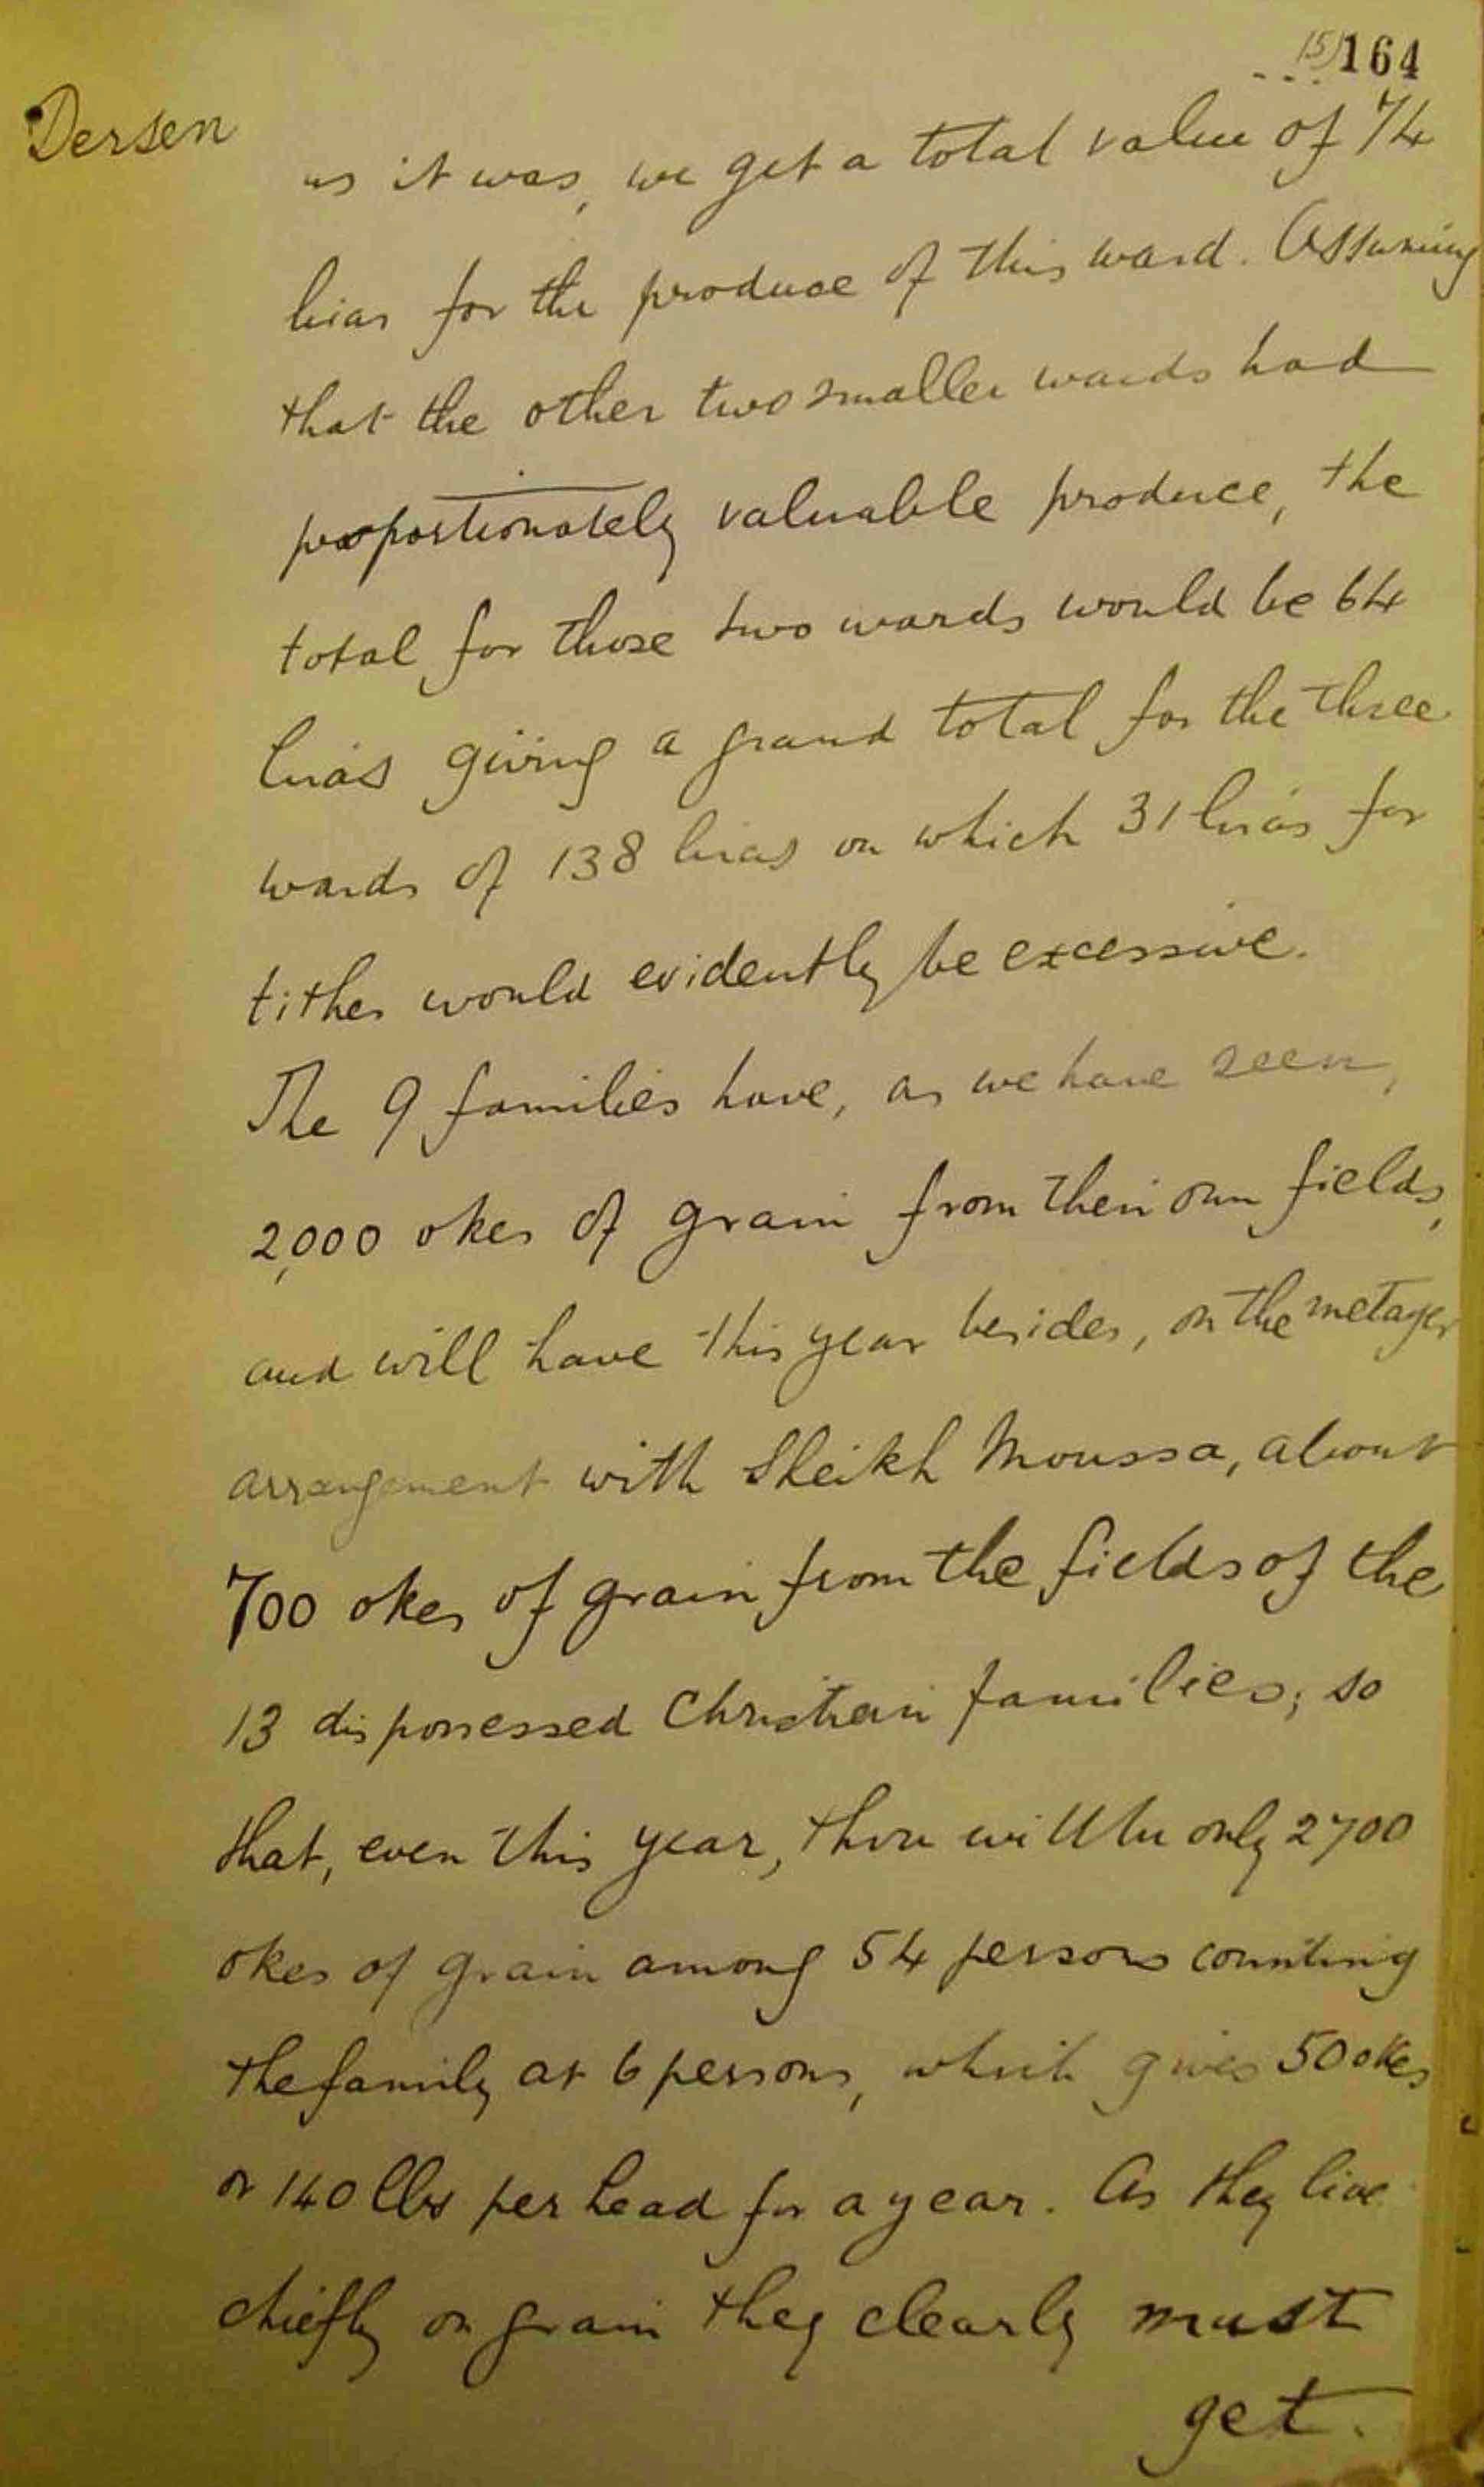 15) 164
Dersen
as it was, we get a total value of 74
liras for the produce of this ward. Assuming
that the other two smaller wards had
proportionately valuable produce, the
total for those two wards would be 64
liras giving a grand total for the three
wards of 138 liras on which 31 liras for
tithes would evidently be excessive.
The 9 families have, as we have seen,
2,000 okes of grain from their own fields,
and will have this year besides, on the metayer
arrangement with Sheikh Moussa, about
700 okes of grain from the fields of the
13 dispossessed Christian families; so
that, even this year, there will be only 2700
okes of grain among 54 persons counting
the family at 6 persons, which gives 50 okes
or 140 lbs per head for a year. As they live
chiefly on grain they clearly must
get.